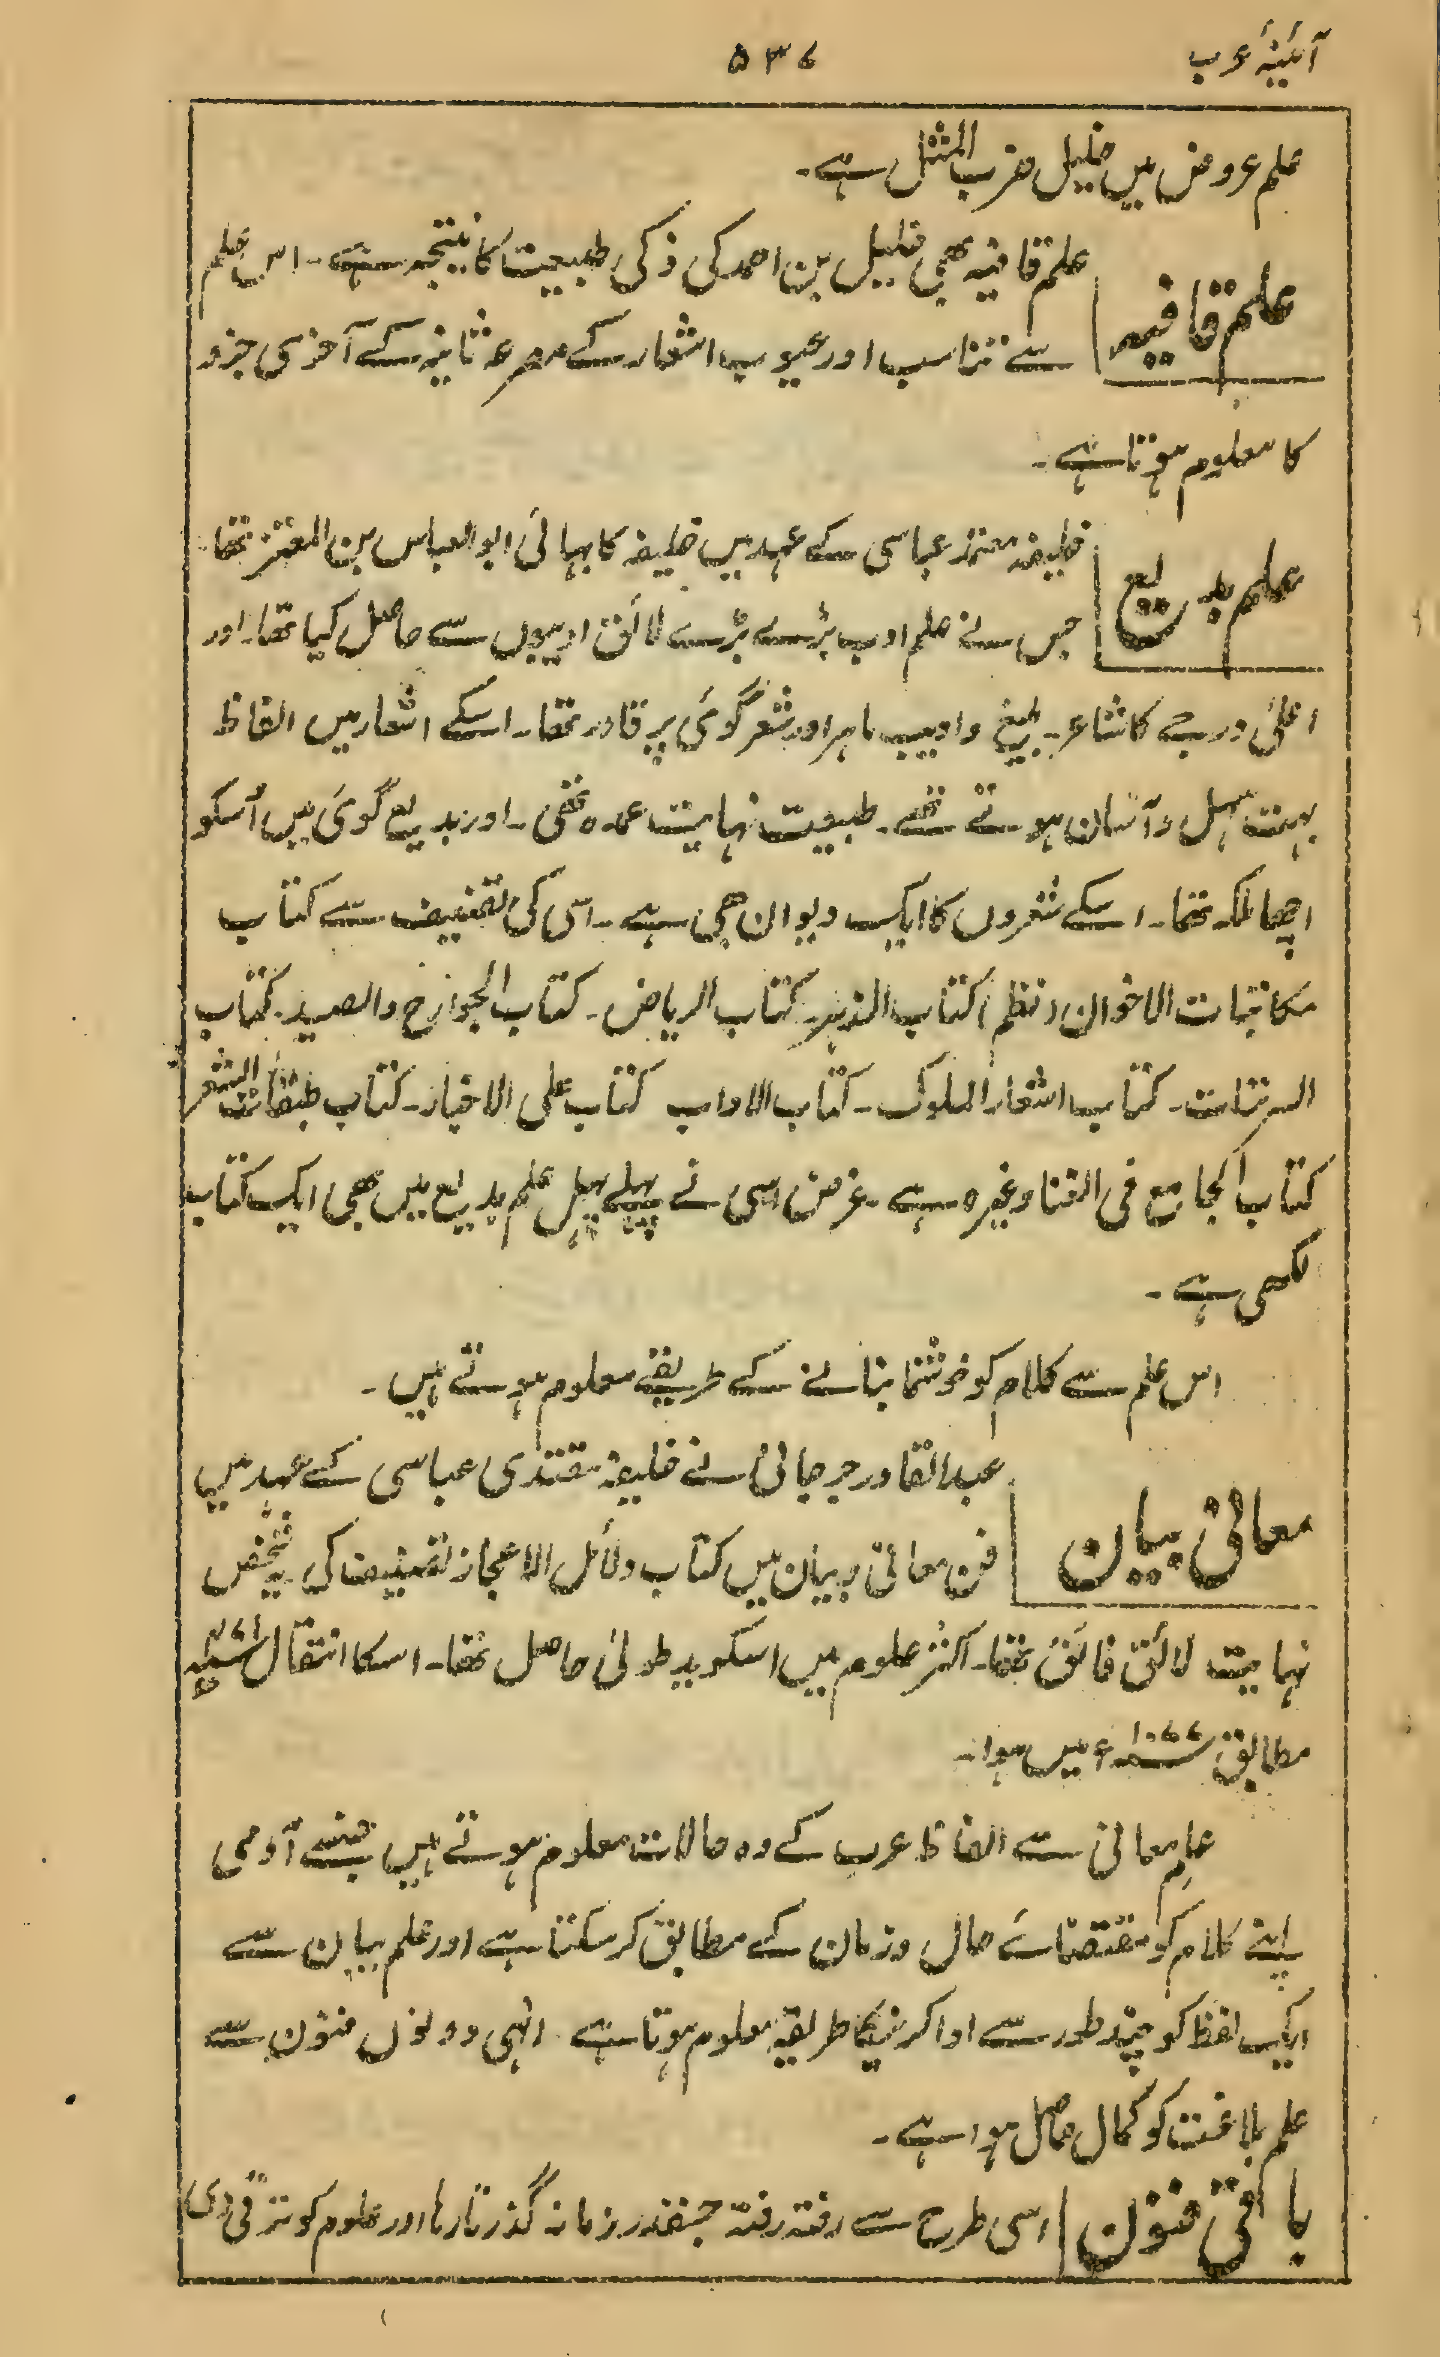 آئینۂ عرب
۵۳۶
علم عروض میں خلیل ضرب المثل ہے۔
علم قافیہ
علم قافیہ بھی خلیل بن احمد کی ذکی طبیعت کا نتیجہ ہے۔ اس علم
سے تناسب اور عیوب اشعار کے مصرعہ ثانیہ کے آخری جزو
کا معلوم ہوتا ہے۔
علم بدیع
خلیفہ معتمد عباسی کے عہد میں خلیفہ کا بہائی ابو العباس بن المعتز تھا
جس نے علم ادب بڑے بڑے لائق ادیبوں سے حاصل کیا تھا۔ اور
اعلیٰ درجے کا شاعر۔ بلیغ وادیب ماہر اور شعر گوئی پر قادر تھا۔ اسکے اشعار میں الفاظ
بہت سہل وآسان ہوتے تھے۔ طبیعت نہایت عمدہ تھی۔ اور بدیع گوئی میں اُسکو
اچھا ملکہ تھا۔ اسکے شعروں کا ایک دیوان بھی ہے۔ اسی کی تصنیف سے کتاب
مکاتبات الاخوان (نظم) کتاب الزہر۔ کتاب الریاض۔ کتاب الجوارح والصید۔ کتاب
السرقات۔ کتاب اشعار الملوک۔ کتاب الاداب کتاب علی الاخبار۔ کتاب طبقات الشعر
کتاب الجامع فی الغنا وغیرہ ہے۔ غرض اسی نے پہلے پہل علم بدیع میں بھی ایک کتاب
لکھی ہے۔
اس علم سے کلام کو خوشنما بنانے کے طریقے معلوم ہوتے ہیں۔
معانی بیان
عبدالقادر جرجانی نے خلیفہ مقتدی عباسی کے عہد میں
فن معانی وبیان میں کتاب دلائل الاعجاز تصنیف کی یہ شخص
نہایت لائق فائق تھا۔ اکثر علوم میں اسکو ید طولیٰ حاصل تھا۔ اسکا انتقال ۴۷۱ھ
مطابق ۱۰۷۷ء میں ہوا۔
علم معانی سے الفاظ عرب کے وہ حالات معلوم ہوتے ہیں جنسے آدمی
اپنے کلام کو مقتضائے حال وزمان کے مطابق کر سکتا ہے اور علم بیان سے
ایک لفظ کو چند طور سے ادا کرنیکا طریقہ معلوم ہوتا ہے انہی دونوں فنون سے
علم بلاغت کو کمال حاصل ہوا ہے۔
باقی فنون
اسی طرح سے رفتہ رفتہ جسقدر زمانہ گذرتا رہا اور علوم کو ترقی دی